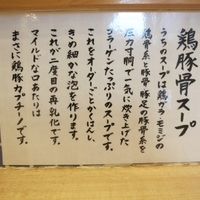 鶏豚骨スープ
うちのスープは鶏ガラ モミジの
鶏骨系と豚骨 豚足の豚骨系を
圧力寸胴で一気に炊き上げた、
コラーゲンたっぷりのスープです。
これをオーダーごとかくはんし、
きめ細かな泡を作ります。
これが二度目の再乳化です。
マイルドな口あたりは
まさに鶏豚カプチーノです。